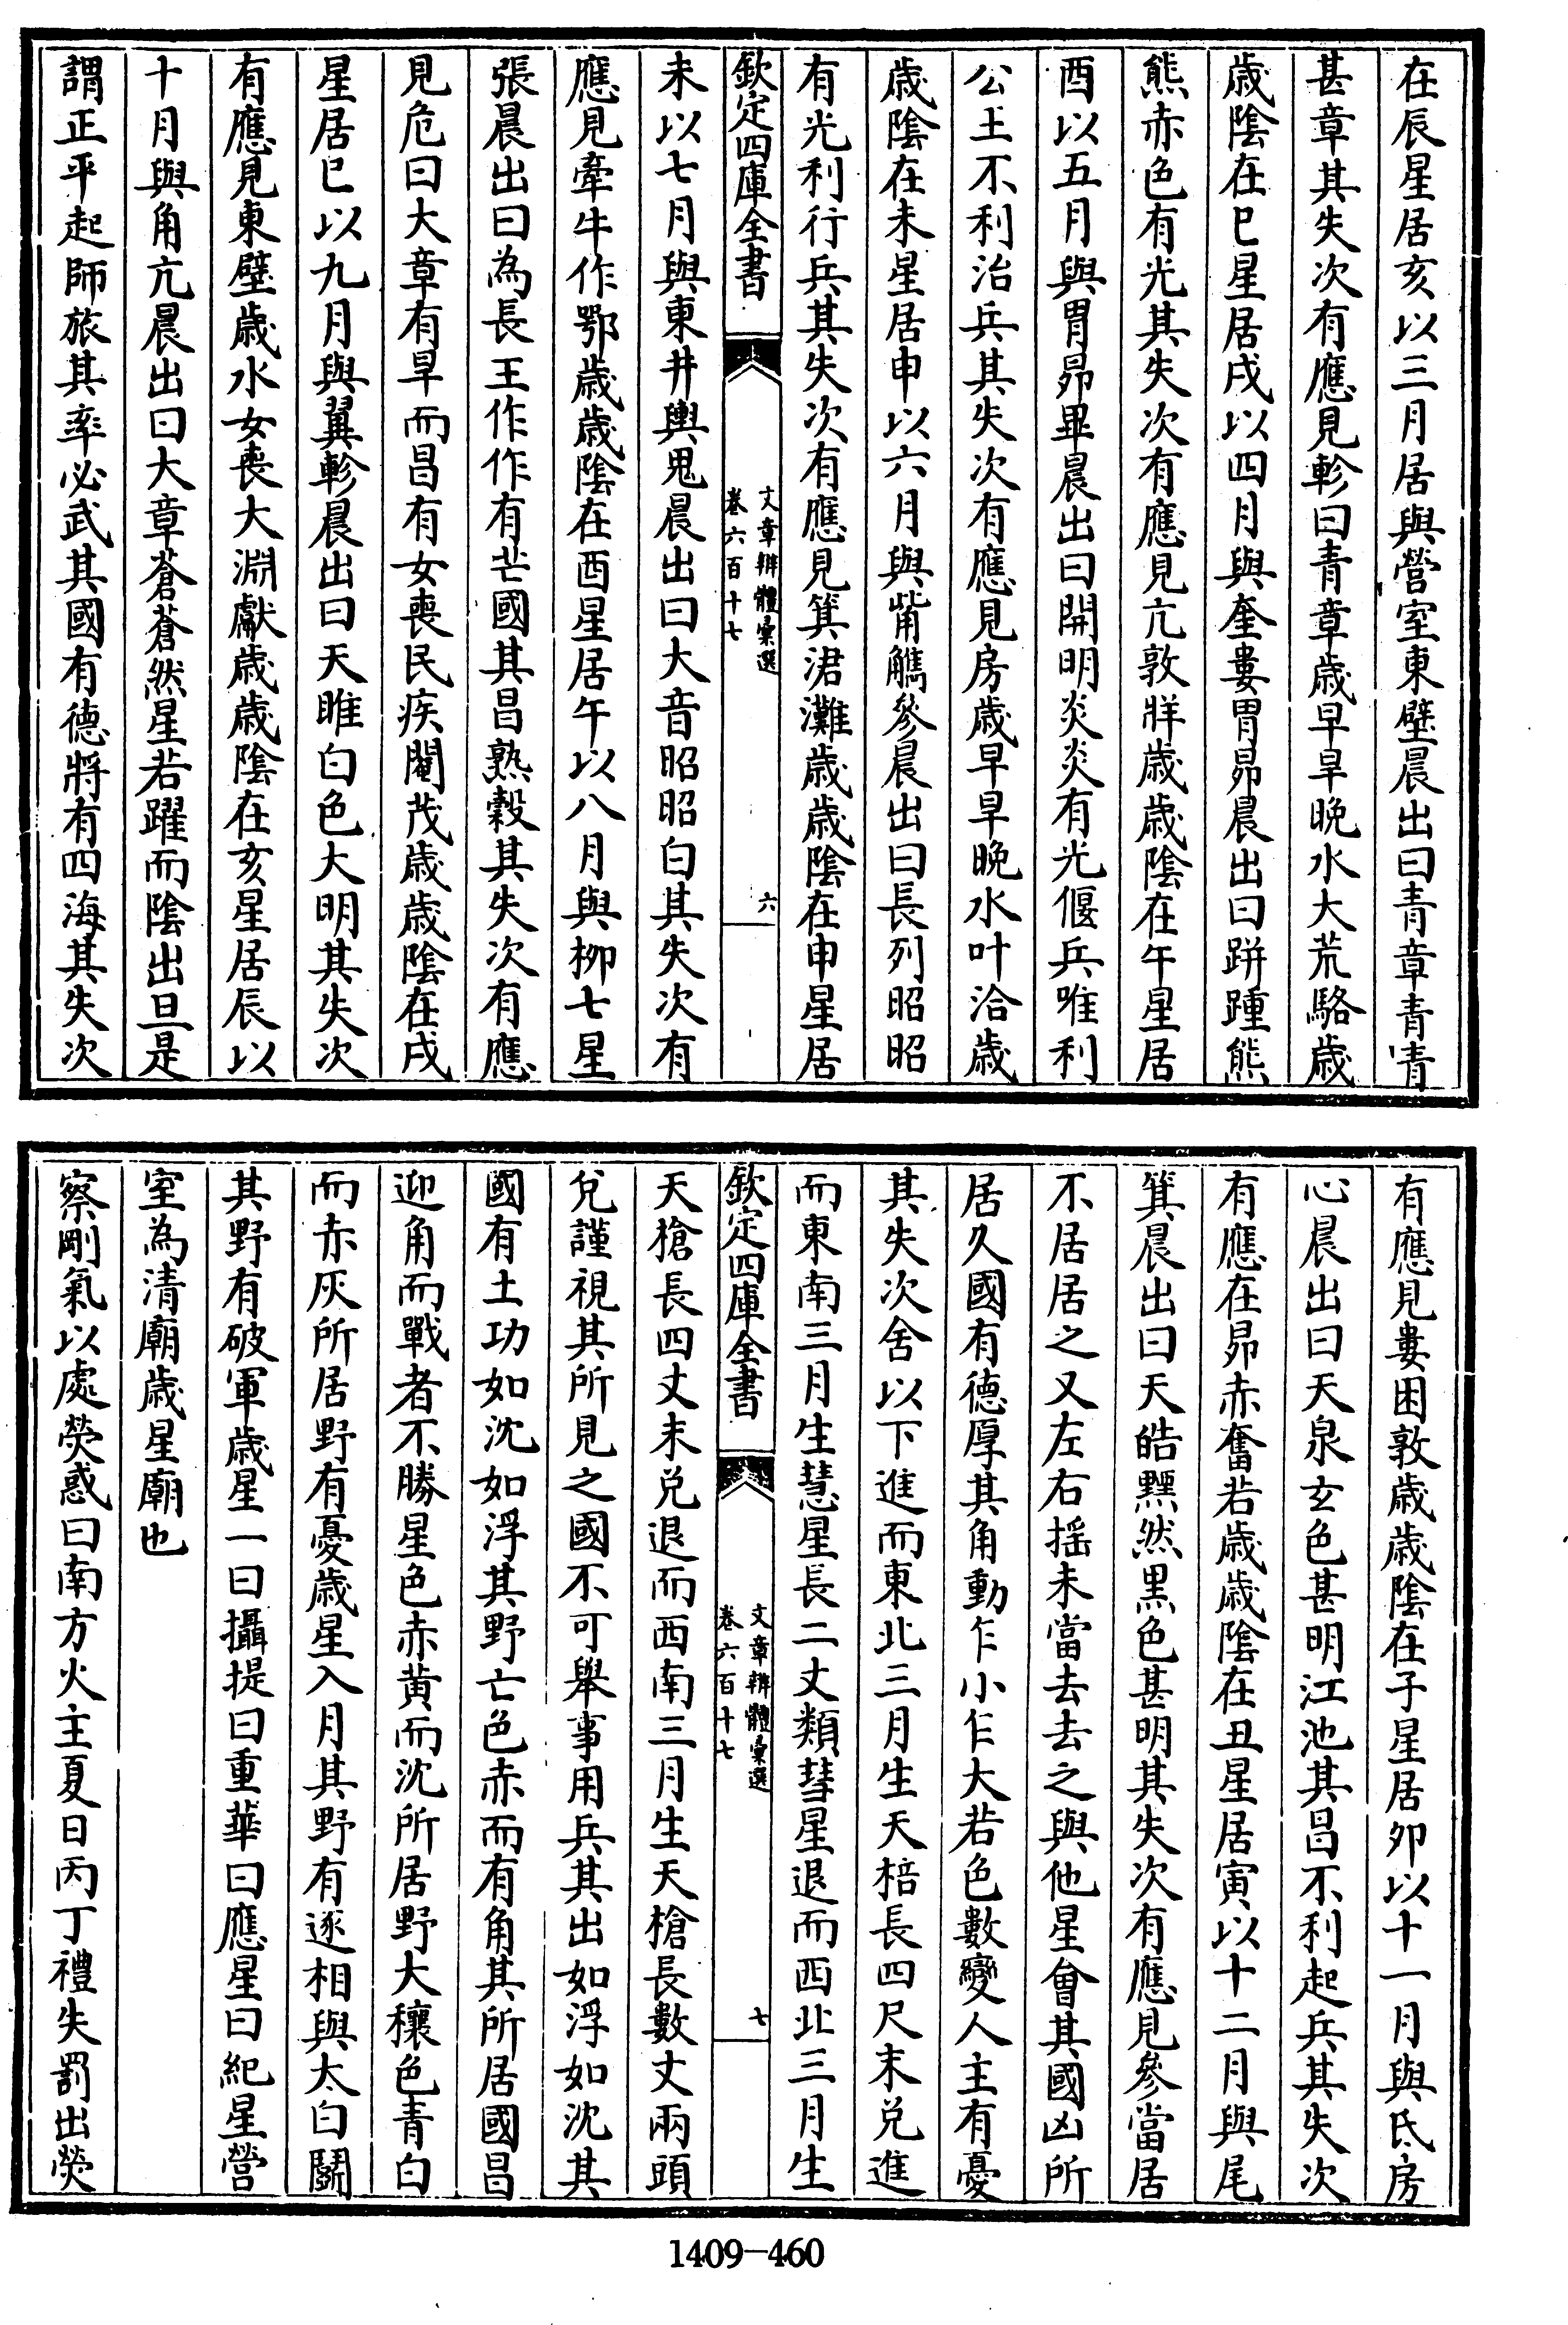 在辰星居亥以三月居與營室東壁晨出曰青章青青
甚章其失次有應見軫曰青章歲早旱晚水大荒駱歲
歲陰在巳星居戌以四月與奎婁胃昴晨出曰跰踵熊
熊赤色有光其失次有應見亢敦牂歲歲陰在午星居
酉以五月與胃昴畢晨出曰開明炎炎有光偃兵唯利
公王不利治兵其失次有應見房歲早旱晚水叶洽歲
歲陰在未星居申以六月與觜觿參晨出曰長列昭昭
有光利行兵其失次有應見箕涒灘歲歲陰在申星居
欽定四庫全書
文章辨體彙選
卷六百十七
六
未以七月與東井輿鬼晨出曰大音昭昭白其失次有
應見牽牛作鄂歲歲陰在酉星居午以八月與柳七星
張晨出曰為長王作作有芒國其昌熟穀其失次有應
見危曰大章有旱而昌有女喪民疾閹茂歲歲陰在戌
星居巳以九月與翼軫晨出曰天睢白色大明其失次
有應見東壁歲水女喪大淵獻歲歲陰在亥星居辰以
十月與角亢晨出曰大章蒼蒼然星若躍而陰出旦是
謂正平起師旅其率必武其國有德將有四海其失次
有應見婁困敦歲歲陰在子星居卯以十一月與氐房
心晨出曰天泉玄色甚明江池其昌不利起兵其失次
有應在昴赤奮若歲歲陰在丑星居寅以十二月與尾
箕晨出曰天皓黫然黑色甚明其失次有應見參當居
不居居之又左右搖未當去去之與他星會其國凶所
居久國有德厚其角動乍小乍大若色數變人主有憂
其失次舍以下進而東北三月生天棓長四尺末兌進
而東南三月生慧星長二丈類彗星退而西北三月生
欽定四庫全書
文章辨體彙選
卷六百十七
七
天槍長四丈末兌退而西南三月生天槍長數丈兩頭
兌謹視其所見之國不可舉事用兵其出如浮如沈其
國有土功如沈如浮其野亡色赤而有角其所居國昌
迎角而戰者不勝星色赤黃而沈所居野大穰色青白
而赤灰所居野有憂歲星入月其野有逐相與太白鬭
其野有破軍歲星一曰攝提曰重華曰應星曰紀星營
室為清廟歲星廟也
察剛氣以處熒惑曰南方火主夏日丙丁禮失罰出熒
1409-460